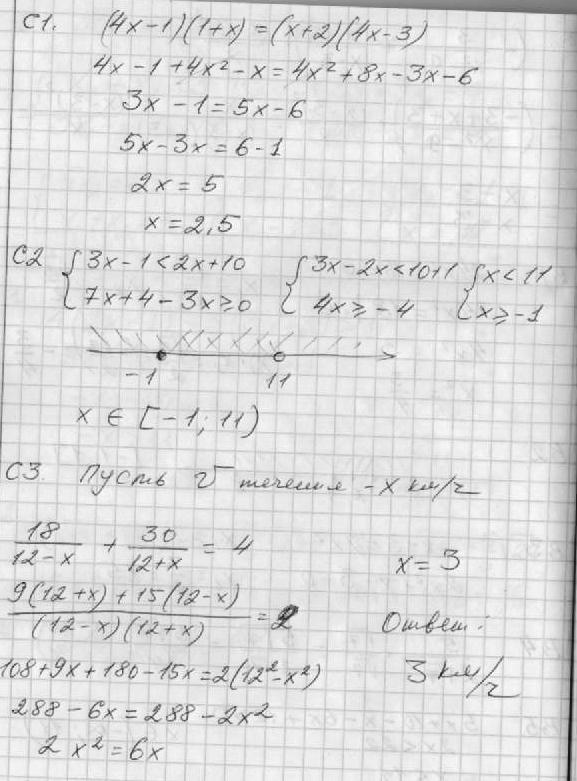 C1. (4x-1)(1+x)=(x+2)(4x-3)
4x-1+4x²-x=4x²+8x-3x-6
3x-1=5x-6
5x-3x=6-1
2x=5
x=2,5
C2 { 3x-1<2x+10 { 3x-2x<10+1 { x<11
{ 7x+4-3x≥0 { 4x≥-4 { x≥-1
-1 11
x ∈ [-1; 11)
C3. Пусть V течения -x км/ч
18/(12-x) + 30/(12+x) = 4
(9(12+x)+15(12-x))/((12-x)(12+x)) = 2
108+9x+180-15x=2(12²-x²)
288-6x=288-2x²
2x²=6x
x=3
Ответ:
3 км/ч